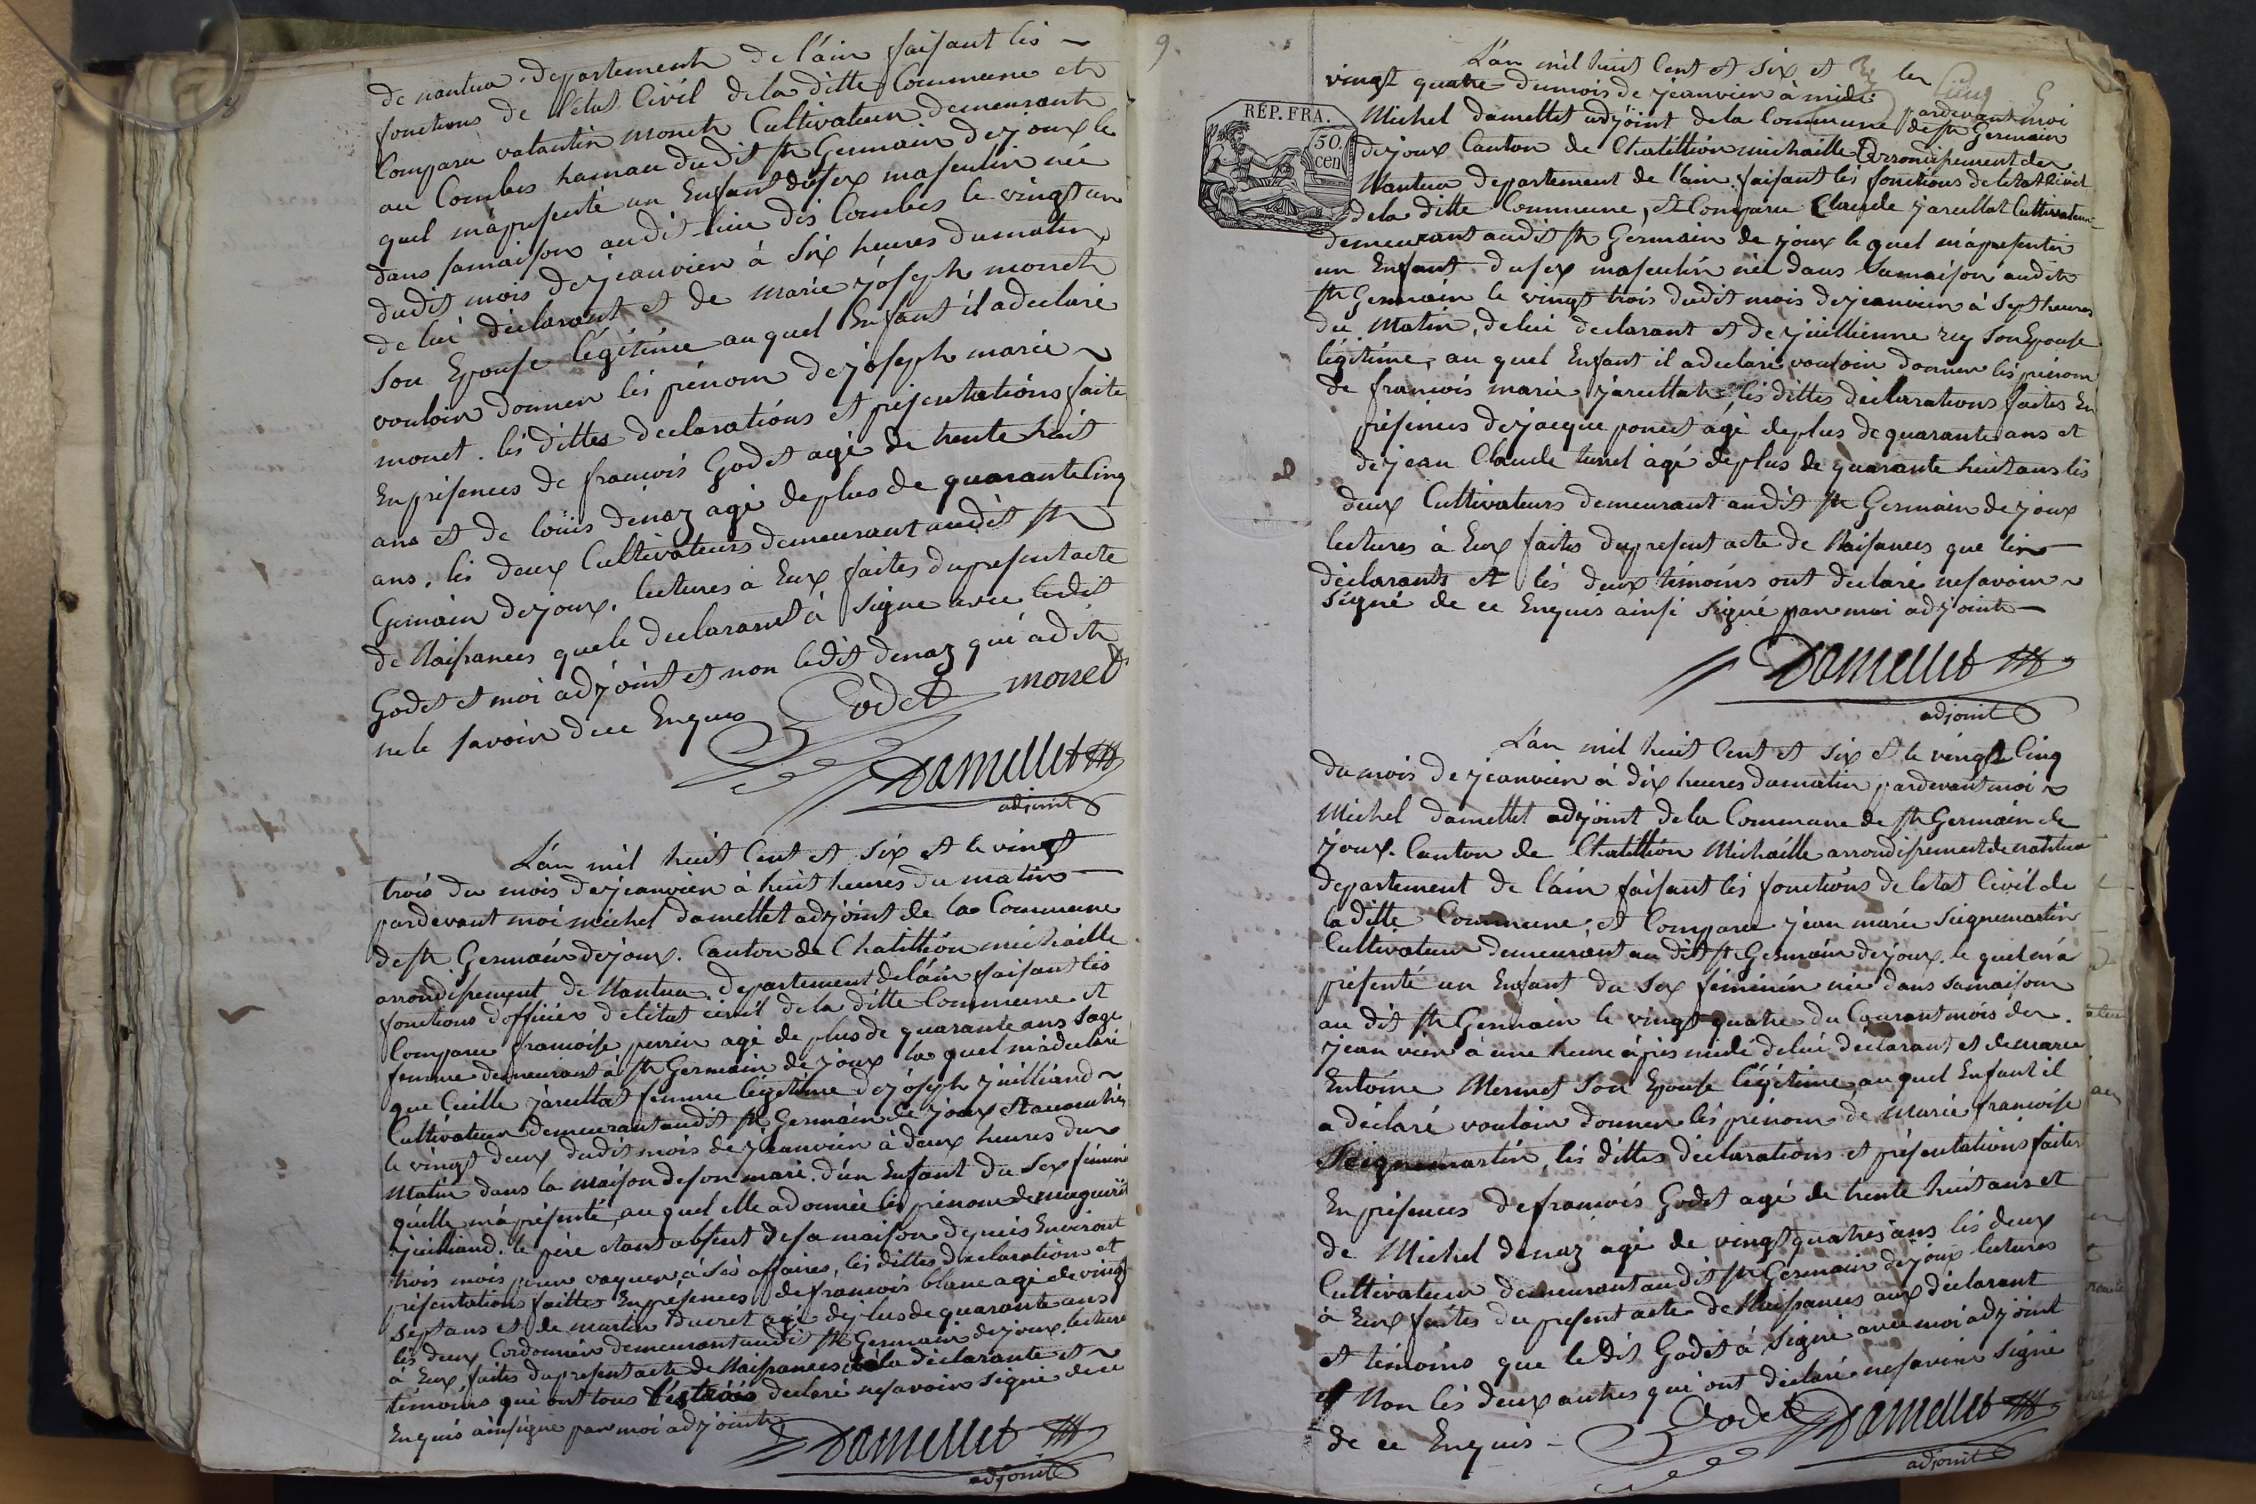 de nantua. departement de l'ain faisant lés
fonctions de l'état Civil dela ditte Commune et
Comparu valantin moneth Cultivateur demeurant
au Combes hamau dudit st Germain dejoux le
quel má présenté un Enfant dusex masculin née
dans samaison audit lieu dés Combes le vingt un
dudit mois dejeanvier à Six heures dumatin,
de lui déclarant et de marie jóseph moneth
son Epouse légitime au quel Enfant il adeclaré
vouloir donner lés prénom dejóseph marie
monet. lés dittes declarations et présentations faite
En présences de francois Godet agé de trente huit
ans et de loüis dénaz agé deplus de quarante Cinq
ans. lés deux Cultivateurs demeurant audit st
Germain dejoux. lectures à Eux faites dupresent acte
de Naissances quele declarant à signe avec ledit
Godet et moi adjóint et non ledit denaz qui adit
nele savoir dece Enquis Godet monet
Damellet
adjoint
L'an mil huit Cent et six et le vingt
trois du mois dejeanvier à huit heures du matin
pardevant moi michel damellet adjóint de la Commune
de st Germain dejoux. Canton de Chatillión michaille
arrondissement de Nantua. departement deláin faisant lés
fonctions d'officier delétat civil dela ditte Commune et
Comparu francoise perrin agé de plus de quarante ans sage
femme demeurant à st Germain de joux la quel má declaré
que Cécille járcellat femme légitime dejóseph juilliand
Cultivateur demeurant audit st Germain de joux et acouchée
le vingt deux dudit mois dejeanvier à deux heures du
Matin dans la maison deson mari. d'un Enfant du Sex féminin
qu'elle má présenté, au quel elle adonnée lés prénom de
juilliand. le père etant absent desa maison depuis Environt
trois mois pour vaquer à Sés affaires, lés dittes declaration et
présentation faittes En présences de francois blanc agé de vingt
sept ans et de martin ducret agé de plus de quarante ans
lés deux Cordonnier demeurant audit st Germain dejoux. lecture
à Eux faites dupresent acte de Naissances à la déclarante et
témoins qui ont tous lestrois declaré nesavoir signé dece
Enquis ainsi signé par moi adjóint
Damellet
adjoint
9.
L'an mil huit Cent et six et le Cinq
vingt quatre dumois de jeanvier à midi pardevant moi
RÉP. FRA.
50. cen
Michel damellet adjóint dela Commune de st Germain
dejoux Canton de Chatillión michaille arrondissement de
Nantua departement de l'ain. faisant lés fonctions de létat Civil
dela ditte Commune, et Comparu Claude jarcellat Cultivateur
demeurant audit st Germain de joux le quel má présenté
un Enfant. dusex masculin née dans samaison audit
st Germain le vingt trois dudit mois dejeanvier à Sept heures
du Matin, delui declarant et dejuillienne rey Son Epouse
légitime, au quel Enfant il adeclaré vouloir donner lés prénom
de francois marie jarcellat, lés dittes déclarations faites En
présences dejacque poncet agé deplus de quarante ans et
dejean Claude agé deplus de quarante huit ans lés
deux Cultivateurs demeurant audit st Germain dejoux
lectures à Eux faites dupresent acte de Naissances que
déclarants et lés deux témoins ont declaré nesavoir
signé de ce Enquis ainsi signé par moi adjóint
Damellet
adjoint
L'an mil huit Cent et six et le vingt Cinq
du mois dejeanvier à dix heures dumatin pardevant moi
Michel damellet adjóint dela Commune de st Germain de
joux. Canton de Chatillión Michaille arrondissement de nantua
departement de l'ain faisant lés fonctions de létat Civil de
la ditte Commune, et Comparu jean marie Seignemartin
Cultivateur demeurant au dit st Germain dejoux. le quel má
présenté un Enfant du Sex féminin née dans samaison
au dit st Germain le vingt quatre du Courant mois de
jeanvier à une heure aprés midi delui déclarant et de marie
Entoine Mermet Son Epouse légitime, au quel Enfant il
a déclaré vouloir donner lés prénom de Marie francoise
Seignemartin, lés dittes déclarations et présentations faites
En présences defrancois Godet agé de trente huit ans et
de Michel denaz agé de vingt quatres ans lés deux
Cultivateur demeurant audit st Germain dejoux lectures
à Eux faites du présent acte de Naissances aux déclarant
et témoins que ledit Godet à Signé avec moi adjóint
et Non lés deux autres qui ont déclaré nesavoir Signé
de ce Enquis. Godet Damellet
adjoint